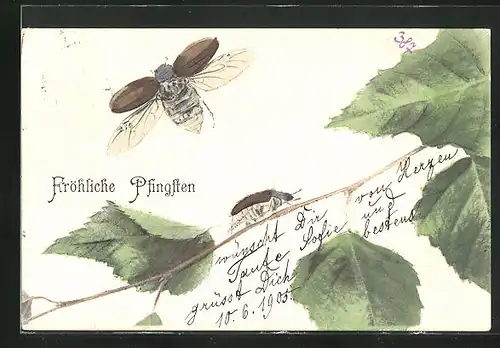 387
Fröhliche Pfingsten
wünscht Dir von Herzen
Tante Sofie und
grüsst Dich bestens
10.6.1905.